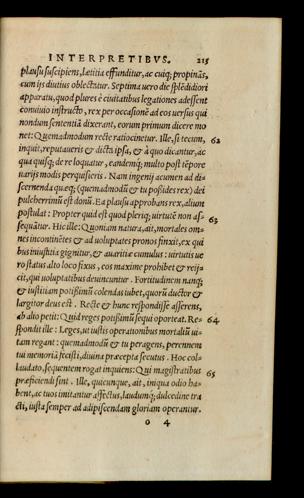 INTERPRETIBVS. 215
plausu suscipiens, lætitia effunditur, ac cuiq; propinās,
cum ijs diutius oblectatur. Septima uero die splēdidiori
apparatu, quod plures è ciuitatibus legationes adessent
conuiuio instructo, rex per occasionē ad eos uersus qui
nondum sententiā dixerant, eorum primum dicere mo
net: Quemadmodum recte ratiocinetur. Ille, si tecum, 62
inquit, reputaueris & dicta ipsa, & à quo dicantur, ac
qua quisq; de re loquatur, eandemq; multo post tēpore
uarijs modis perquisieris. Nam ingenij acumen ad di=
scernenda quæq; (quemadmodū & tu possides rex) dei
pulcherrimū est donū. Ea plausu approbans rex, alium
postulat: Propter quid est quod pleriq; uirtutē non as= 63
sequātur. Hic ille: Quoniam natura, ait, mortales om=
nes incontinētes & ad uoluptates pronos finxit, ex qui
bus iniustitia gignitur, & auaritiæ cumulus: uirtutis ue
ro status alto loco fixus, eos maxime prohibet & reij=
cit, qui uoluptatibus deuincuntur. Fortitudinem nanq;
& iustitiam potissimū colendas iubet, quorū ductor &
largitor deus est. Recte & hunc respondisse asserens,
ab alio petit: Quid reges potissimū sequi oporteat. Re= 64
spondit ille: Leges, ut iustis operationibus mortaliū ui=
tam regant: quemadmodū & tu peragens, perennem
tui memoriā fecisti, diuina præcepta secutus. Hoc col=
laudato, sequentem rogat inquiens: Qui magistratibus 65
præficiendi sint. Ille, quicunque, ait, iniqua odio ha=
bent, ac tuos imitantur affectus, laudumq; dulcedine tra
cti, iusta semper ad adipiscendam gloriam operantur.
o 4